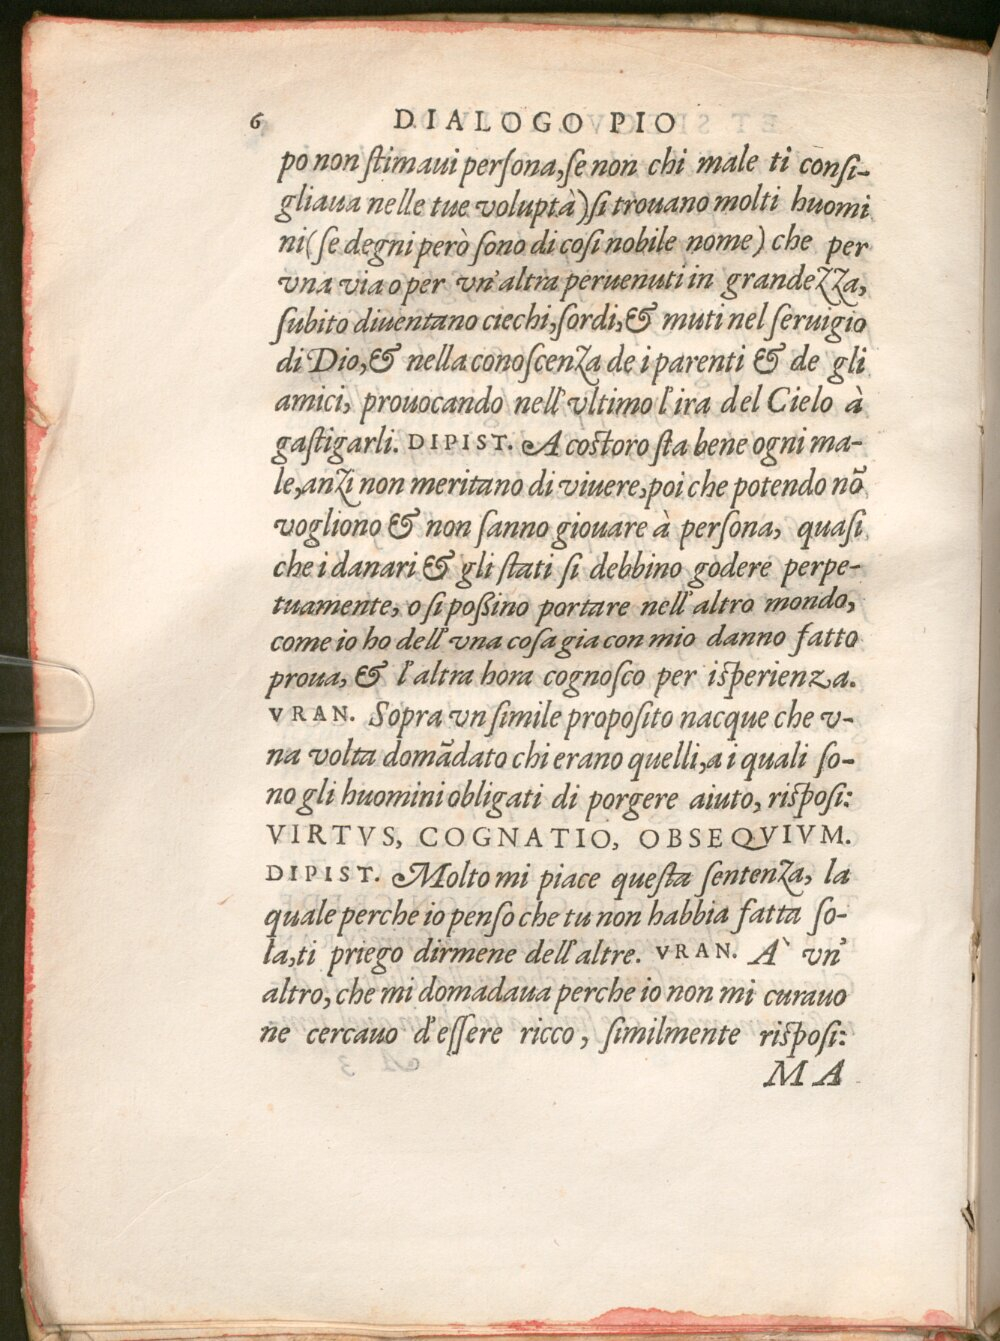 6 DIALOGO PIO
po non ſtimaui perſona, ſe non chi male ti conſi-
gliaua nelle tue voluptà) ſi trouano molti huomi
ni (ſe degni però ſono di coſi nobile nome) che per
vna via o per vn'altra peruenuti in grandezza,
ſubito diuentano ciechi, ſordi, & muti nel ſeruigio
di Dio, & nella conoſcenza de i parenti & de gli
amici, prouocando nell'vltimo l'ira del Cielo à
gaſtigarli. DIPIST. A coſtoro ſta bene ogni ma-
le, anzi non meritano di viuere, poi che potendo nõ
vogliono & non ſanno giouare à perſona, quaſi
che i danari & gli ſtati ſi debbino godere perpe-
tuamente, o ſi poßino portare nell'altro mondo,
come io ho dell'vna coſa gia con mio danno fatto
proua, & l'altra hora cognoſco per iſperienza.
VRAN. Sopra vn ſimile propoſito nacque che v-
na volta domãdato chi erano quelli, a i quali ſo-
no gli huomini obligati di porgere aiuto, riſpoſi:
VIRTVS, COGNATIO, OBSEQVIVM.
DIPIST. Molto mi piace queſta ſentenza, la
quale perche io penſo che tu non habbia fatta ſo-
la, ti priego dirmene dell'altre. VRAN. A` vn'
altro, che mi domadaua perche io non mi curauo
ne cercauo d'eſſere ricco, ſimilmente riſpoſi:
MA